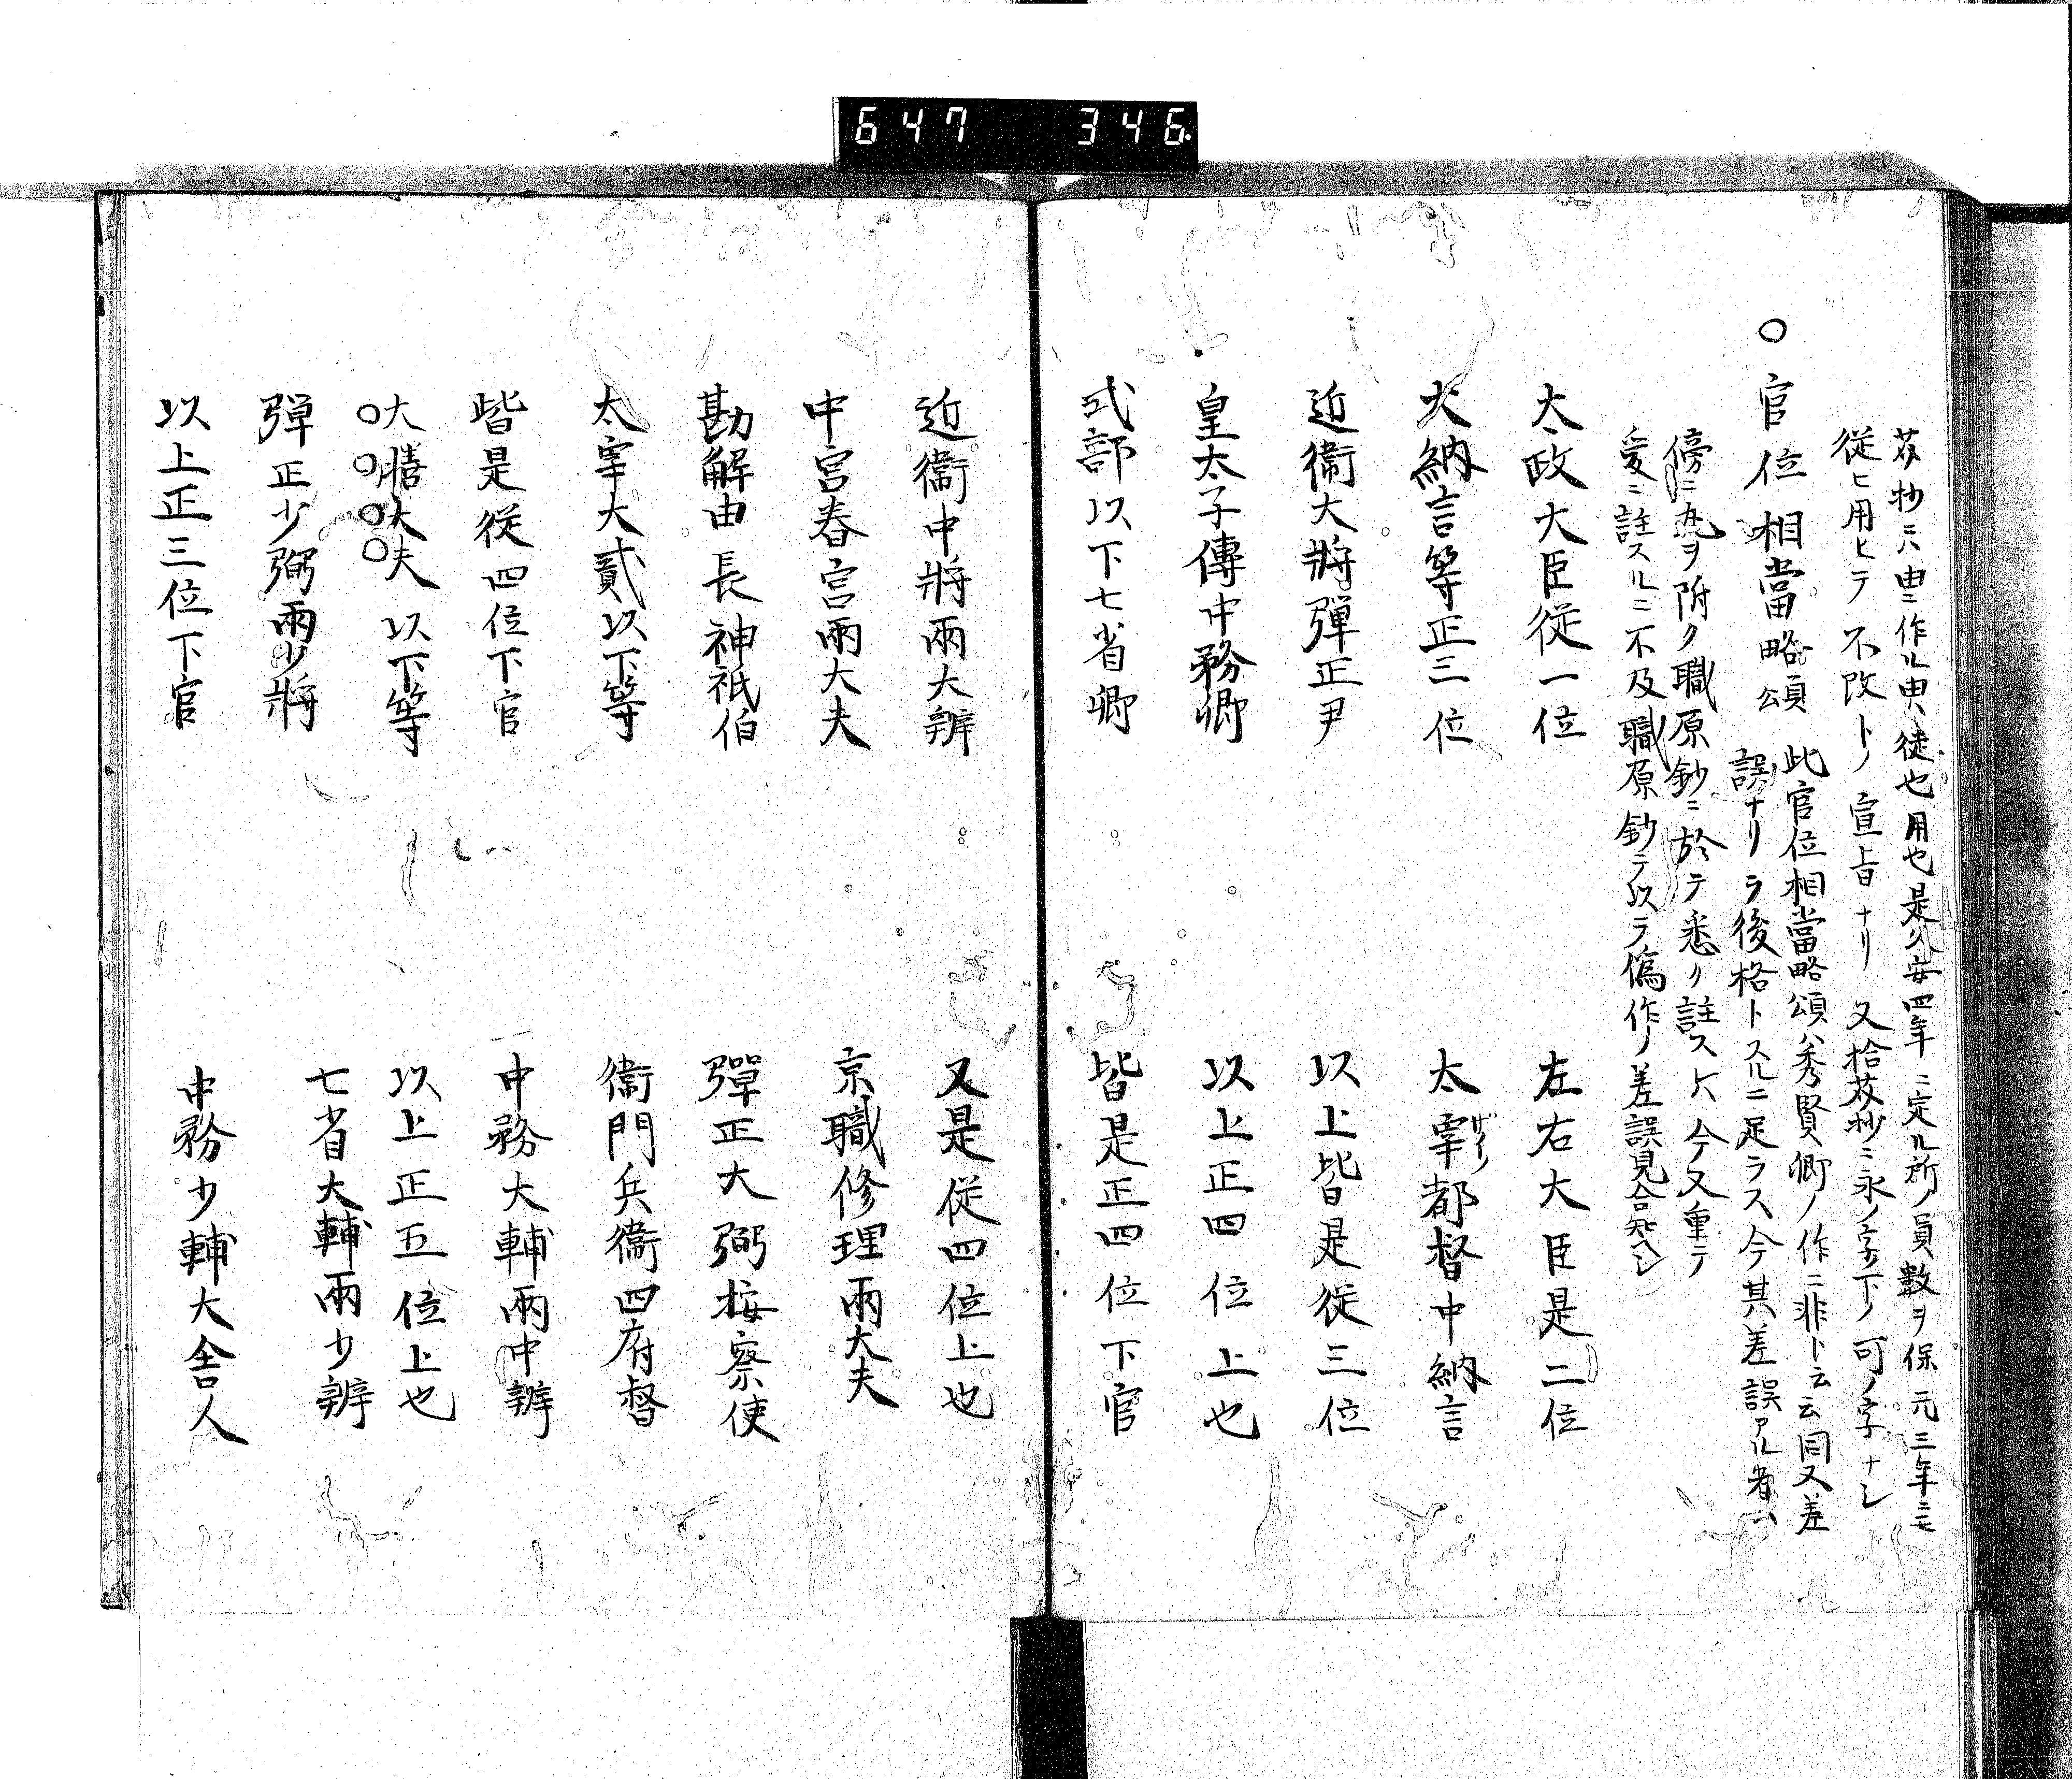 647 346
芥抄ニハ由ニ作ル由ハ従也用也是久安四年ニ定ル所ノ員数ヲ保元三年ニモ
従ヒ用ヒテ不改トノ宣旨ナリ又拾芥抄ニ永ノ字下ノ可ノ字ナシ
○官位相當略頌 此官位相當略頌ハ秀賢卿ノ作ニ非ト云云因又差
誤ナリラ後格トスルニ足ラス今其差誤アル者ハ
傍ニ丸ヲ附ク職原鈔ニ於テ悉ク註スレハ今又重テ
爰ニ註スルニ不及職原鈔テ以ラ僞作ノ差誤見合知ヘシ
太政大臣従一位 左右大臣是二位
大納言等正三位 太宰都督中納言
近衞大將彈正尹 以上皆是従三位
皇太子傳中務卿 以上正四位上也
式部以下七省卿 皆是正四位下官
近衞中將兩大辨 又是従四位上也
中宮春宮兩大夫 京職修理兩大夫
勘解由長神祇伯 彈正大弼按察使
太宰大貳以下等 衞門兵衞四府督
皆是従四位下官 中務大輔兩中辨
大膳大夫以下等 以上正五位上也
彈正少弼兩少將 七省大輔兩少辨
以上正三位下官 中務少輔大舍人